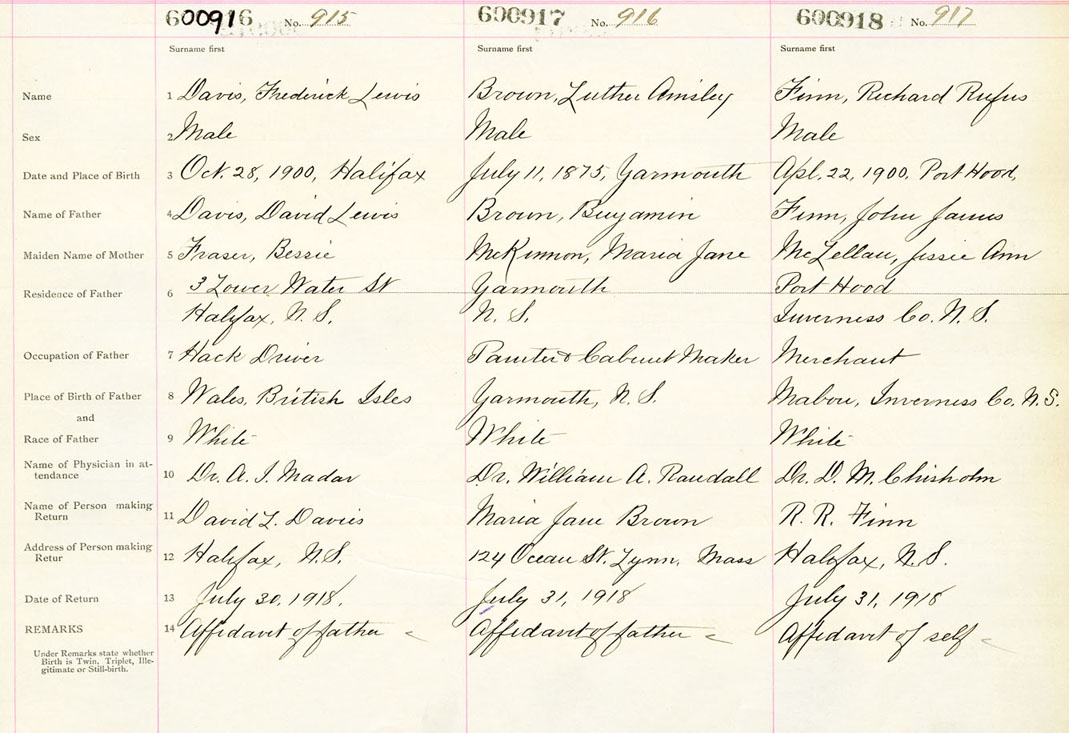 600916 No. 915 600917 No. 916 600918 No. 917
Surname first Surname first Surname first
Name 1 Davis, Frederick Lewis Brown, Luther Ainsley Finn, Richard Rufus
Sex 2 Male Male Male
Date and Place of Birth 3 Oct. 28, 1900, Halifax July 11, 1875, Yarmouth Apl. 22, 1900, Port Hood,
Name of Father 4 Davis, David Lewis Brown, Benjamin Finn, John James
Maiden Name of Mother 5 Fraser, Bessie McKinnon, Maria Jane McLellan, Jessie Ann
Residence of Father 6 3 Lower Water St Yarmouth Port Hood
Halifax, N.S. N.S. Inverness Co. N.S.
Occupation of Father 7 Hack Driver Painter & Cabinet Maker Merchant
Place of Birth of Father 8 Wales, British Isles Yarmouth, N.S. Mabou, Inverness Co. N.S.
and
Race of Father 9 White White White
Name of Physician in at-
tendance 10 Dr. A. I. Madar Dr. William A. Randall Dr. D. M. Chisholm
Name of Person making
Return 11 David L. Davies Maria Jane Brown R. R. Finn
Address of Person making
Retur 12 Halifax, N.S. 124 Ocean St. Lynn, Mass Halifax, N.S.
Date of Return 13 July 30, 1918. July 31, 1918 July 31, 1918
REMARKS 14 Affidavit of father Affidavit of father Affidavit of self
Under Remarks state whether
Birth is Twin, Triplet, Ille-
gitimate or Still-birth.